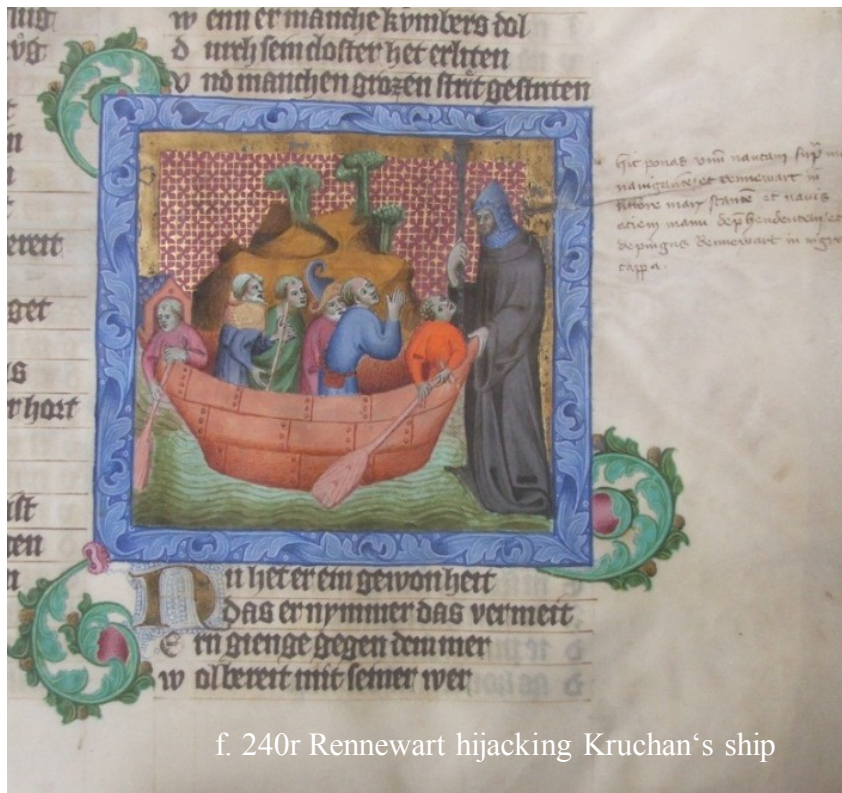 ereit
get
r hort
w enn er manche kůmbers dol
d urch sein closter het erliten
v nd manchen grozen strit gestriten
hic ponas vnū nautam sup̄
navigantē et Rennewart in
littore mar stantē et navis
aciem manu dep̄hendentem et
depingas Rennewart in nigra
cappa.
N u het er ein gewonheit
das er nymmer das vermeit
E rn gienge gegen dem mer
w ol bereit mit seiner wer
f. 240r Rennewart hijacking Kruchan‘s ship